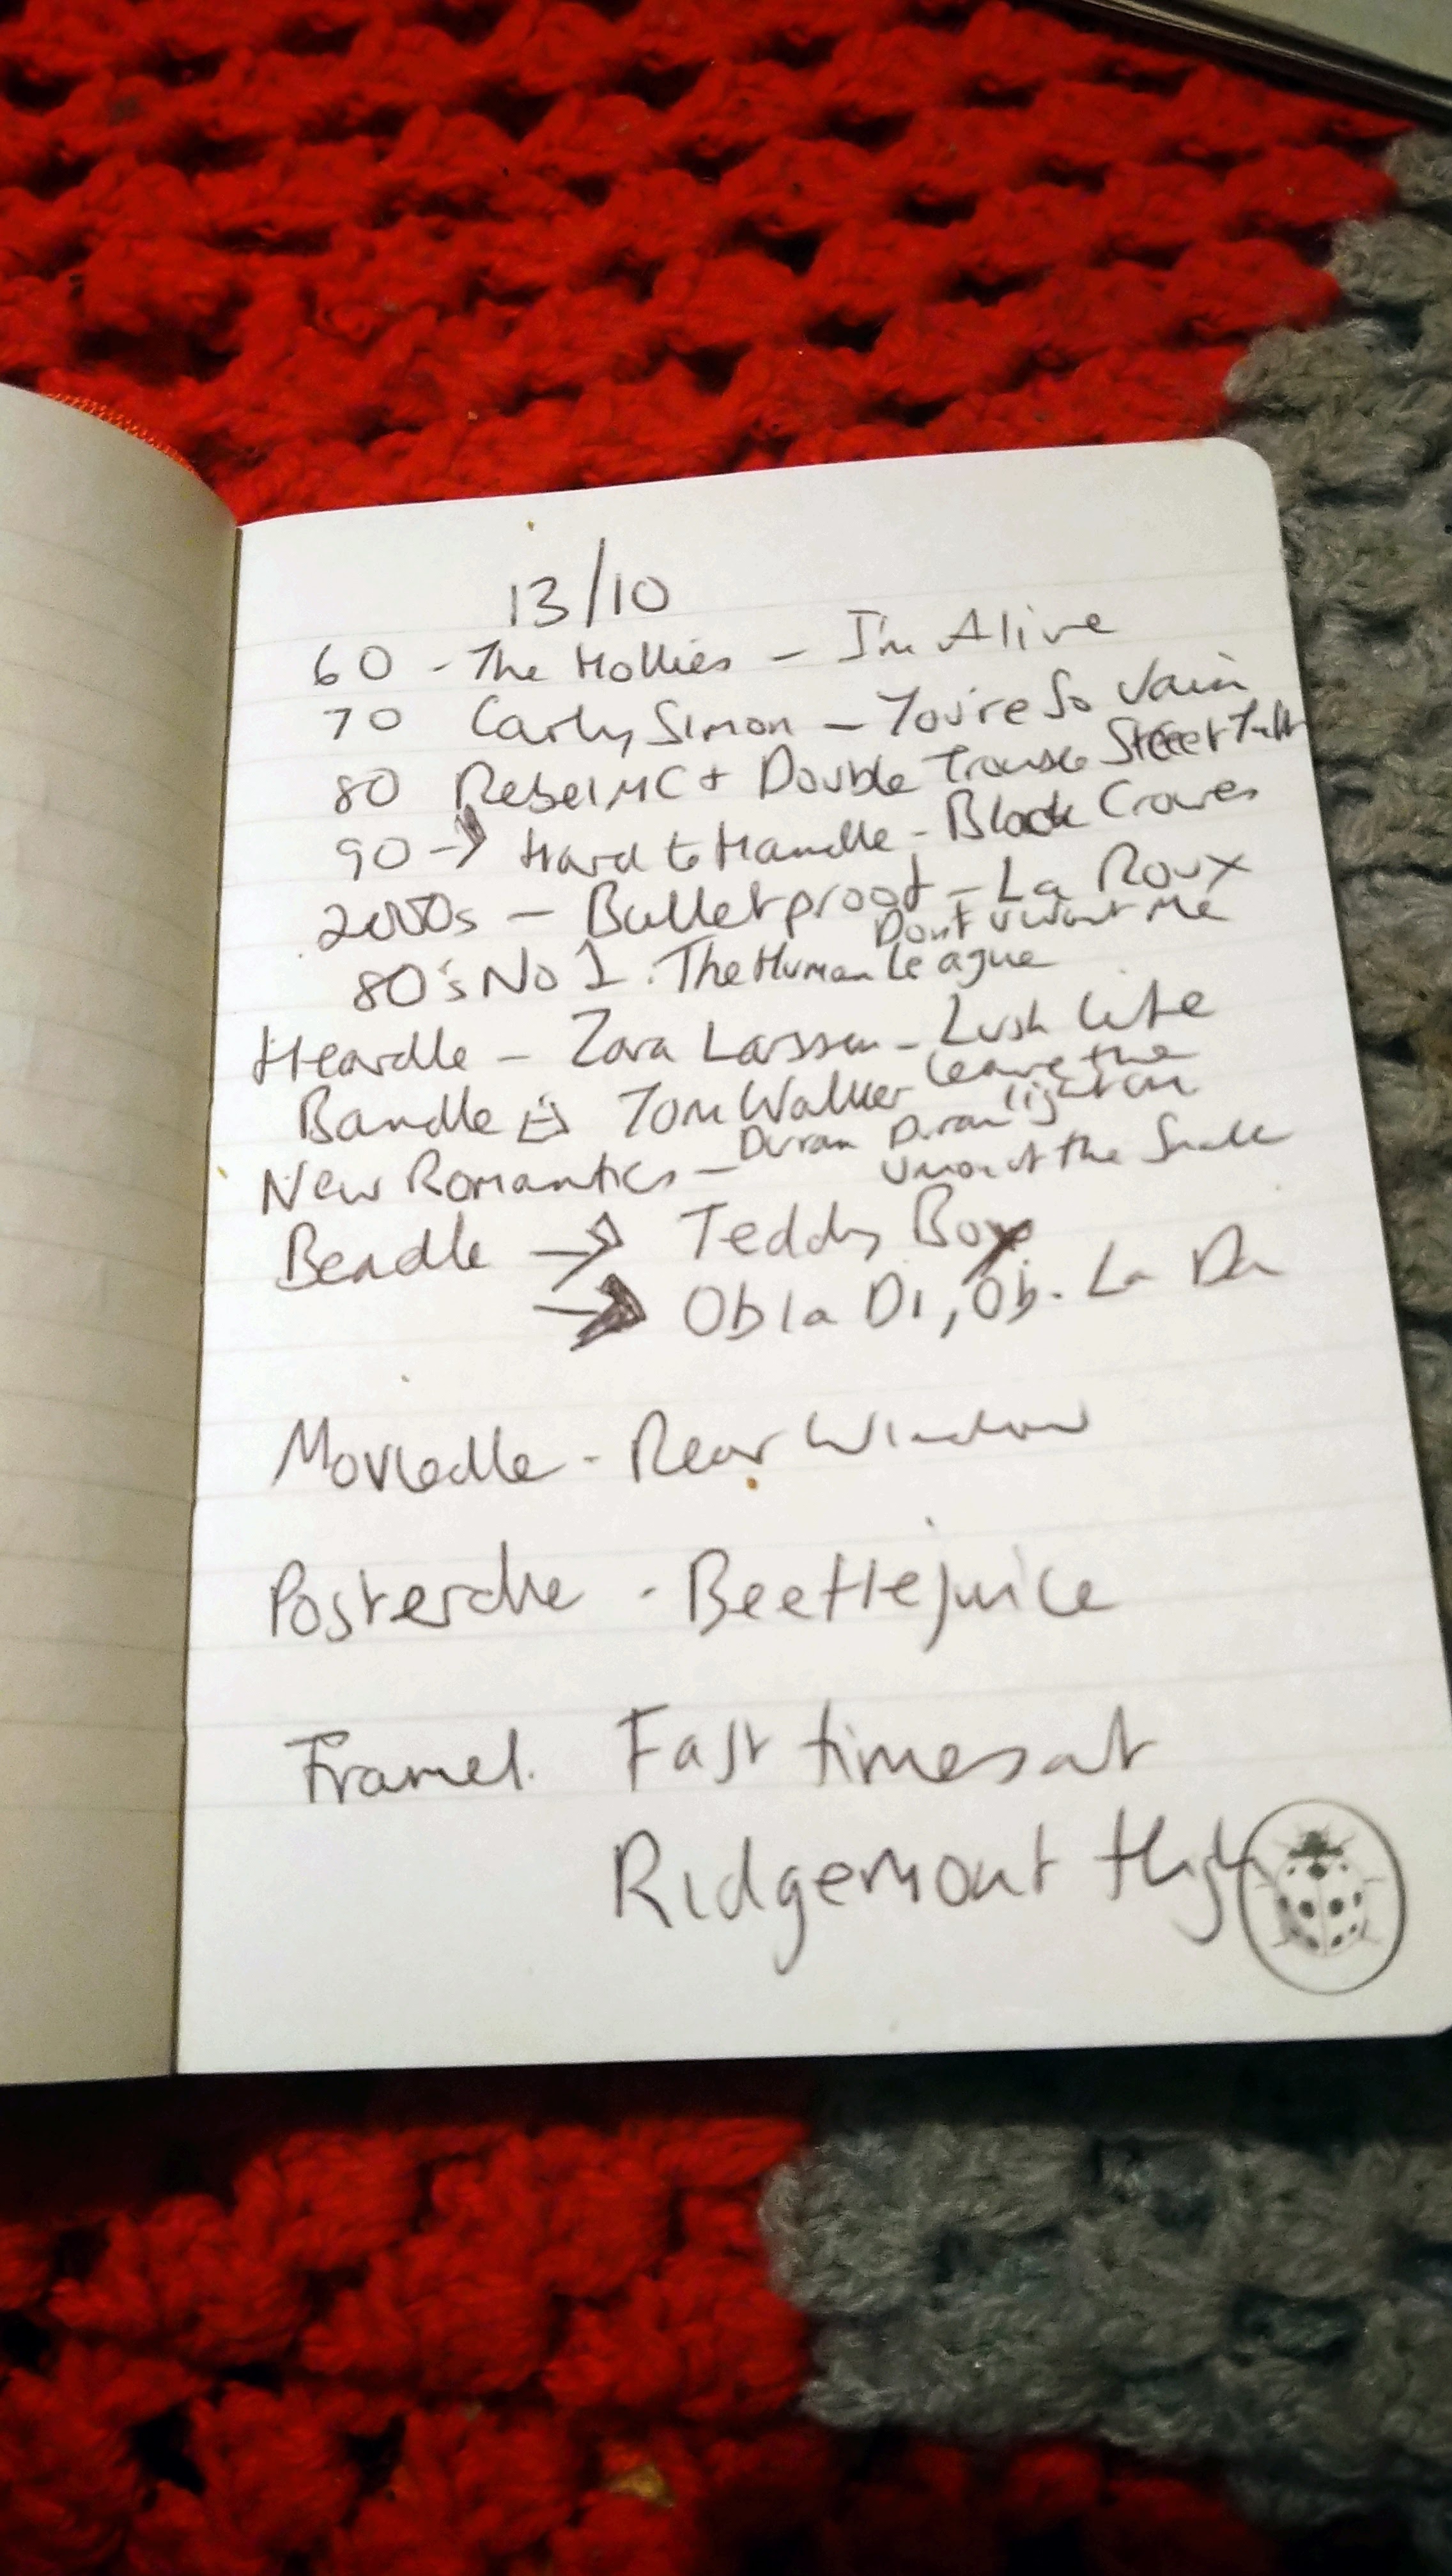 13/10
60 - The Hollies - I'm Alive
70 Carly Simon - You're So Vain
80 Rebel MC + Double Trouble Street Tuff
90 → Hard to Handle - Black Crowes
2000s - Bulletproof - La Roux
Don't want Me
80's No 1. The Human League
Heardle - Zara Larsson - Lush Life
Leave the
Bandle → Tom Walker light on
New Romantics - Duran Duran
Union of the Snake
Beadle → Teddy Boy
→ Ob la Di, Ob. La Da
Moviedle - Rear Window
Posterdle - Beetlejuice
Framed. Fast times at
Ridgemont High